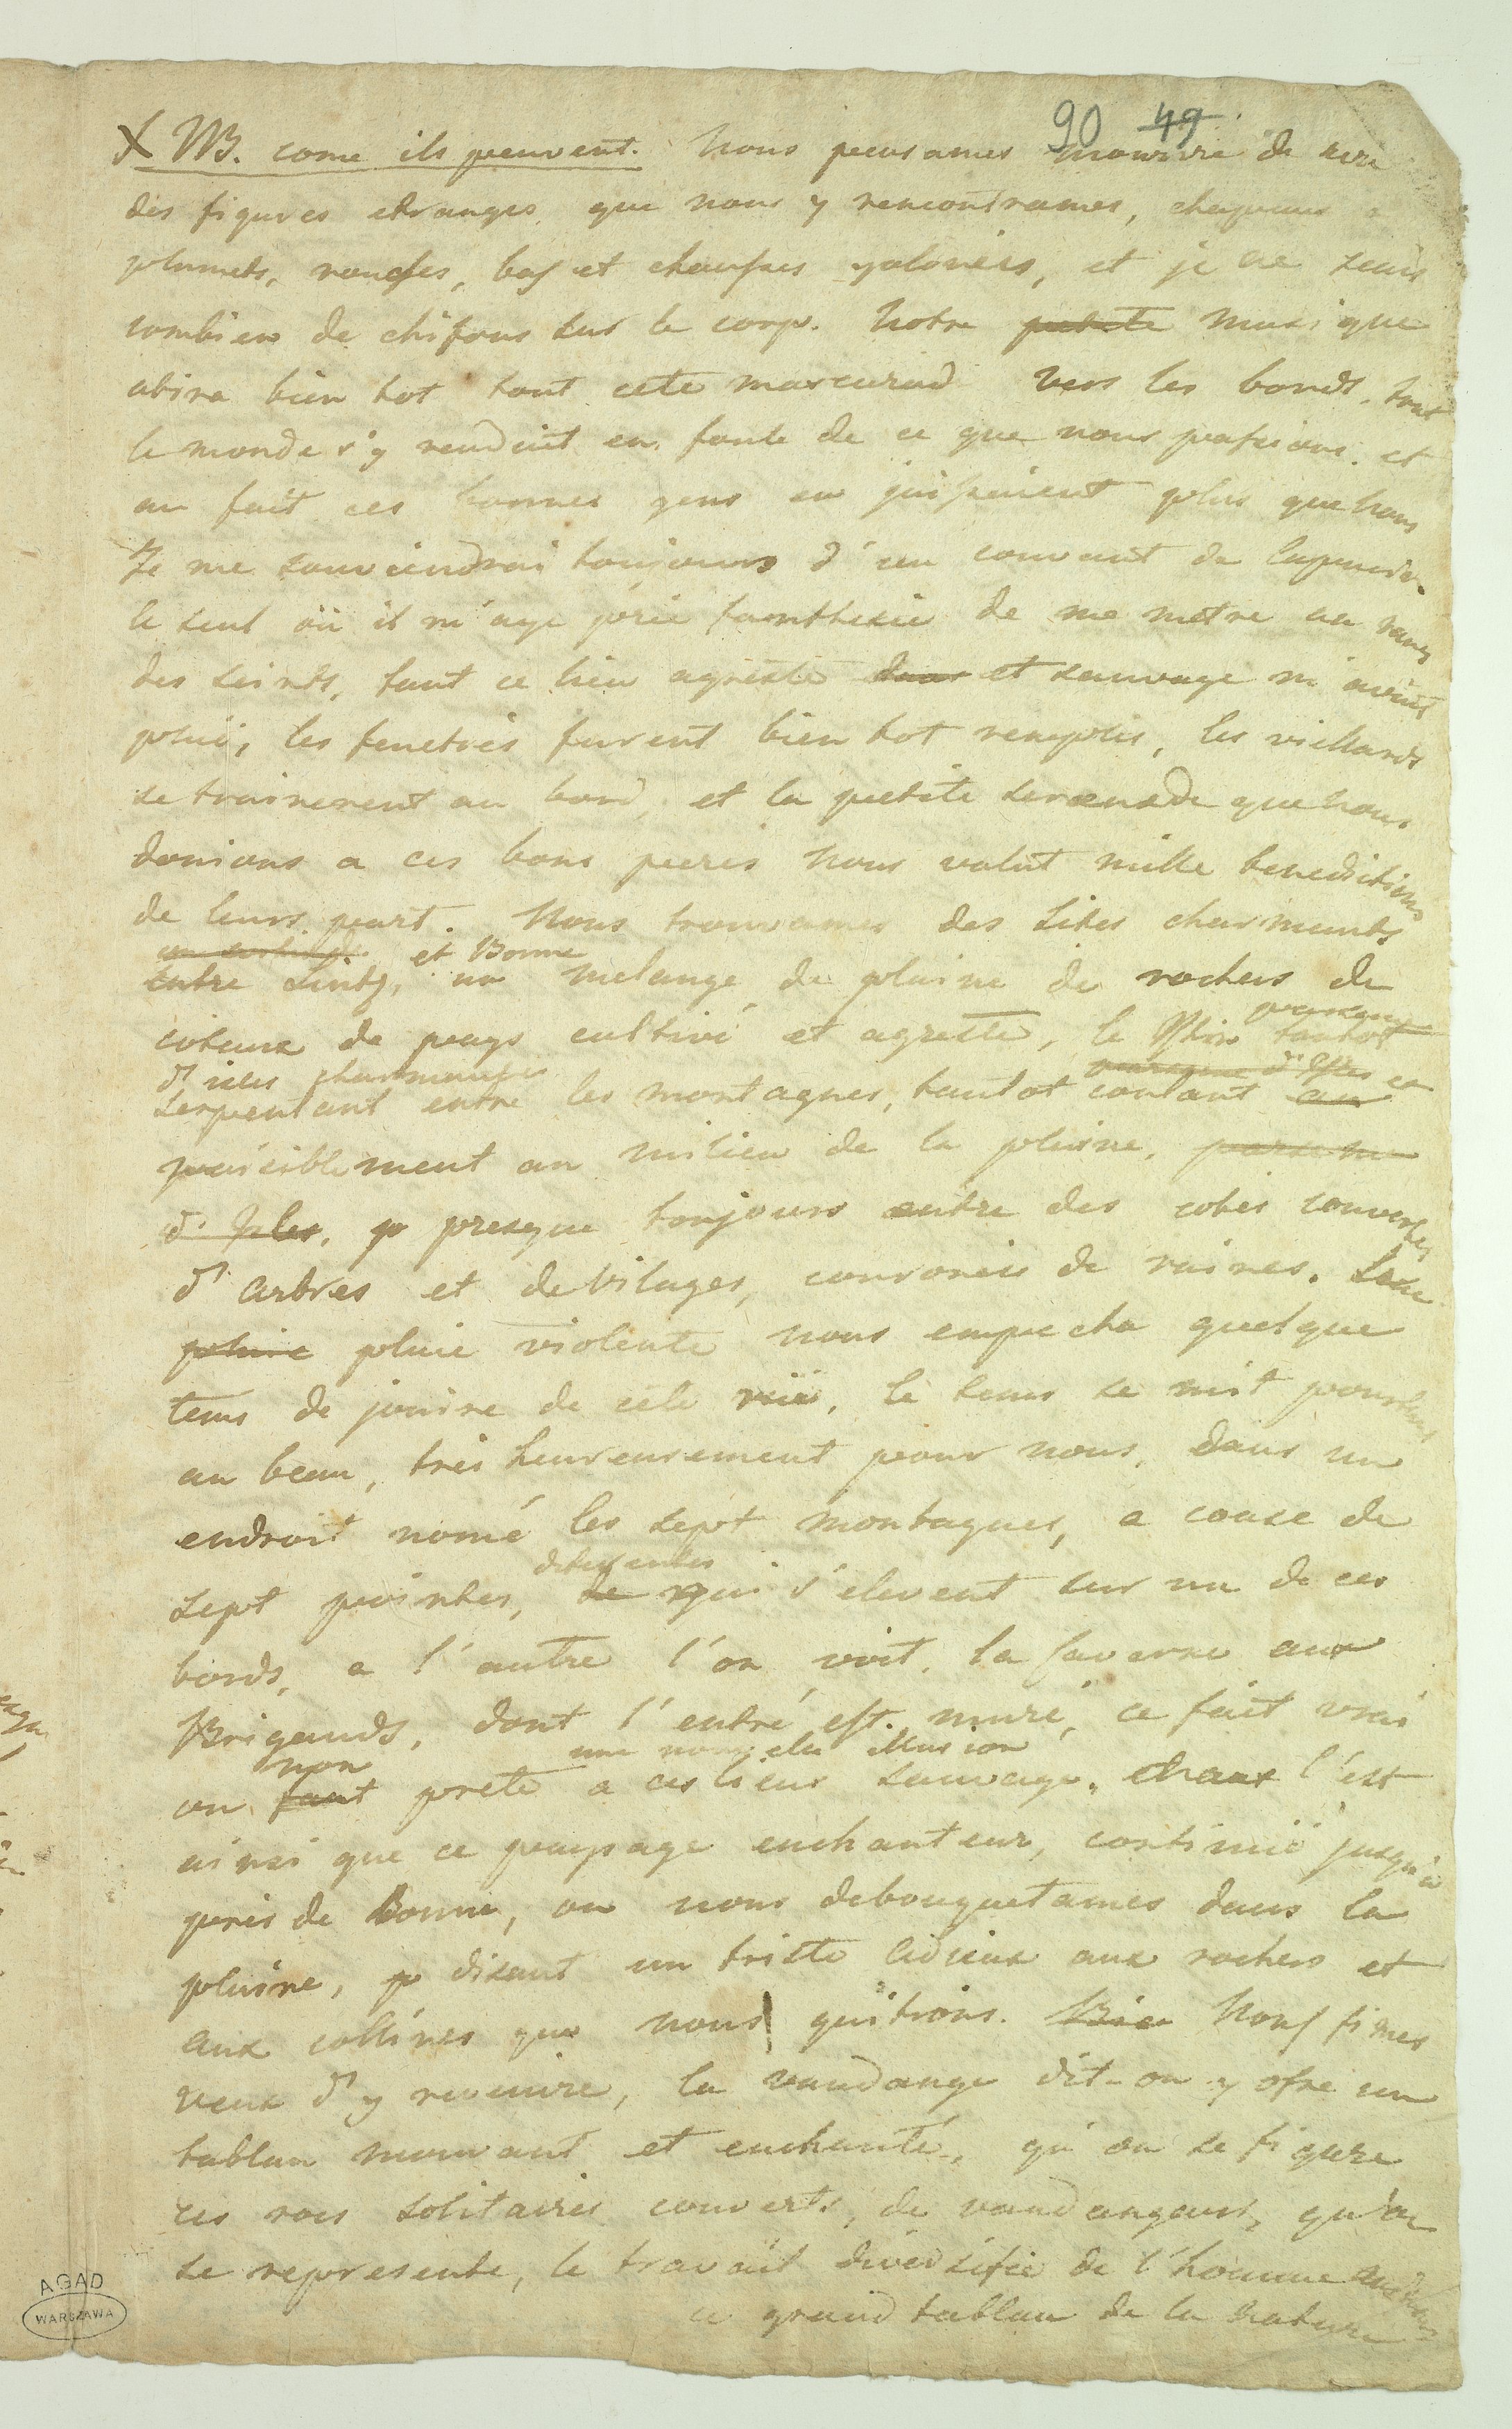 90 49
X NB. come ils peuvent. Nous pensames mourire de rire
des figures etranges que nous y rencontrames, chapeaux a
plumets, rouges, bas et chausses galonés, et je ne scais
combien de chifons sur le corp. Notre petite musique
atira bien tot tout cete mascarad vers les bords, tout
le monde s'y rendoit en foule de ce que nous passions. et
au fait ces bonnes gens en juissoient plus que nous
Je me souviendrai toujours d'un couvent de Capucin.
le seul où il m'aye prie fanthesie de me metre au rang
des seints, tant ce lieu agreste dans et sauvage m'avoit
pluü, les fenetres furent bien tot remplis, les viellards
se trainerent au bord, et la petite serenade que nous
donions a ces bons peres nous valut mille benedictions
de leurs part. Nous trouvames des sites charmants
et Bonne
entre Lintz, un melange de plaine de rochers de
coteaux de pays cultivé et agreste, le Rhin tantot
parsemé
d'isles charmantes
serpentant entre les montagnes, tantot coulant au
paisiblement au milieu de la plaine, parsemé
d'Isles, p presque toujours entre des cotes couvertes
d'arbres et de vilages, couronés de ruines. Une
pluie pluie violente nous empecha quelque
tems de jouire de cete vuë, le tems se mit pourtant
au beau, tres heureusement pour nous, dans un
endroit nomé les sept montagnes, a couse de
sept pointes, qui s'elevent sur un de ces
bords, a l'autre l'on voit, la caverne aux
Brigands, dont l'entré est muré, ce fait vrai
non
une nouvele illusion
ou faut prete a ces lieux sauvage. c'est
ainsi que ce paysage enchanteur, continuë jusqu'a
pres de Bonne, ou nous debouquetames dans la
plaine, p disant un triste adieux aux rochers et
aux collines que nous quitions. Bien Nous fimes
veux d'y revenire, la vandange dit-on y ofre un
tablau mouvant et enchanté, qu'on se figure
ces rocs solitaires couverts, de vandangeurs, qu'on
se represente, le travail diversifié de l'homme
ce grand tablau de la nature
AGAD
WARSZAWA